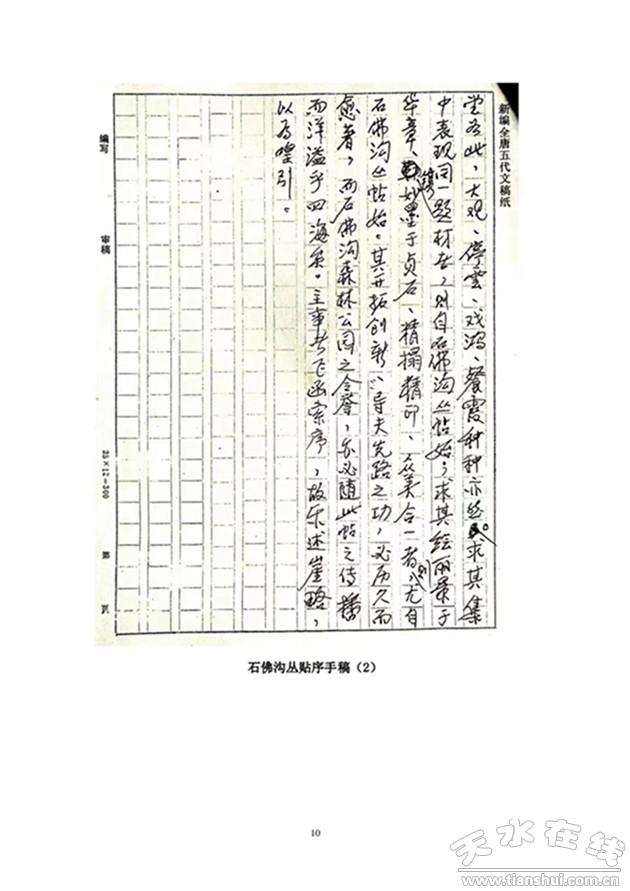 新编全唐五代文稿纸
堂若此，大观、停雲、戏鸿、餐霞种种亦然。求其集
中表现同一题材者，则自石佛沟丛帖始；求其绘丽景于
华章、镌妙墨于贞石、精搨精印、众美合一者，则尤自
石佛沟丛帖始。其开拓创新、导夫先路之功，必历久而
愈著，而石佛沟森林公园之令誉，亦必随此帖之传播
而洋溢乎四海矣。主事者飞函索序，故乐述崖略，
以为喤引。
编写 审稿 25×12=300 第 页
石佛沟丛贴序手稿（2）
10
天水在线
www.tianshui.com.cn